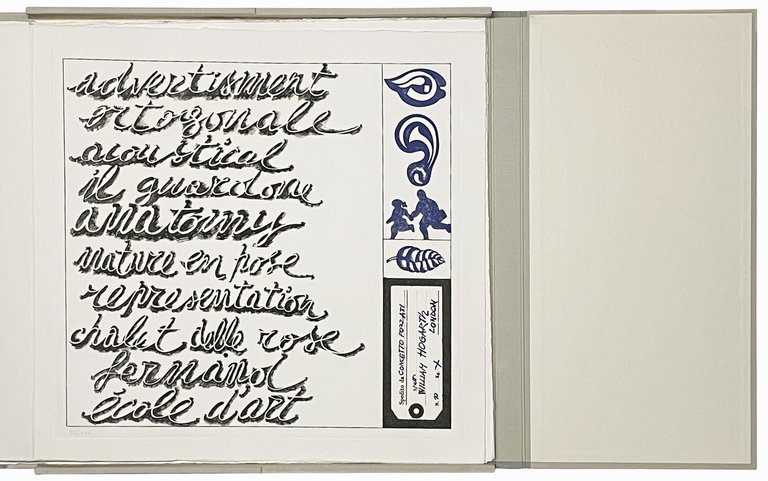 advertisment
ortogonale
acoustical
il guardone
anatomy
nature en pose
representation
chalet delle rose
fernand
école d'art
Spedito da CONCETTO POZZATI
WILLIAM HOGARTH
LONDON